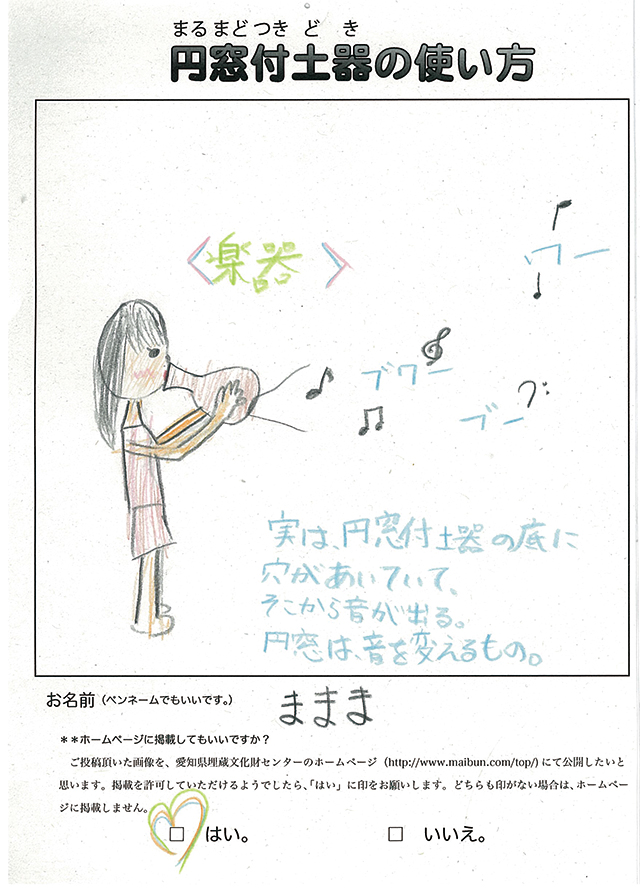 まるまどつきどき
円窓付土器の使い方
〈楽器〉
ワー
ブワー
ブー
実は、円窓付土器の底に
穴があいていて、
そこから音が出る。
円窓は、音を変えるもの。
お名前（ペンネームでもいいです。）
ままま
＊＊ホームページに掲載してもいいですか？
ご投稿頂いた画像を、愛知県埋蔵文化財センターのホームページ（http://www.maibun.com/top/)にて公開したいと
思います。掲載を許可していただけるようでしたら、「はい」に印をお願いします。どちらも印がない場合は、ホームペー
ジに掲載しません。
□ はい。
□ いいえ。